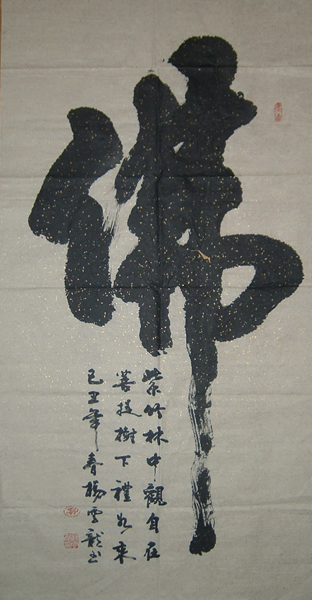 佛
紫竹林中觀自在
菩提樹下禮如來
己丑年春楊雲龍書